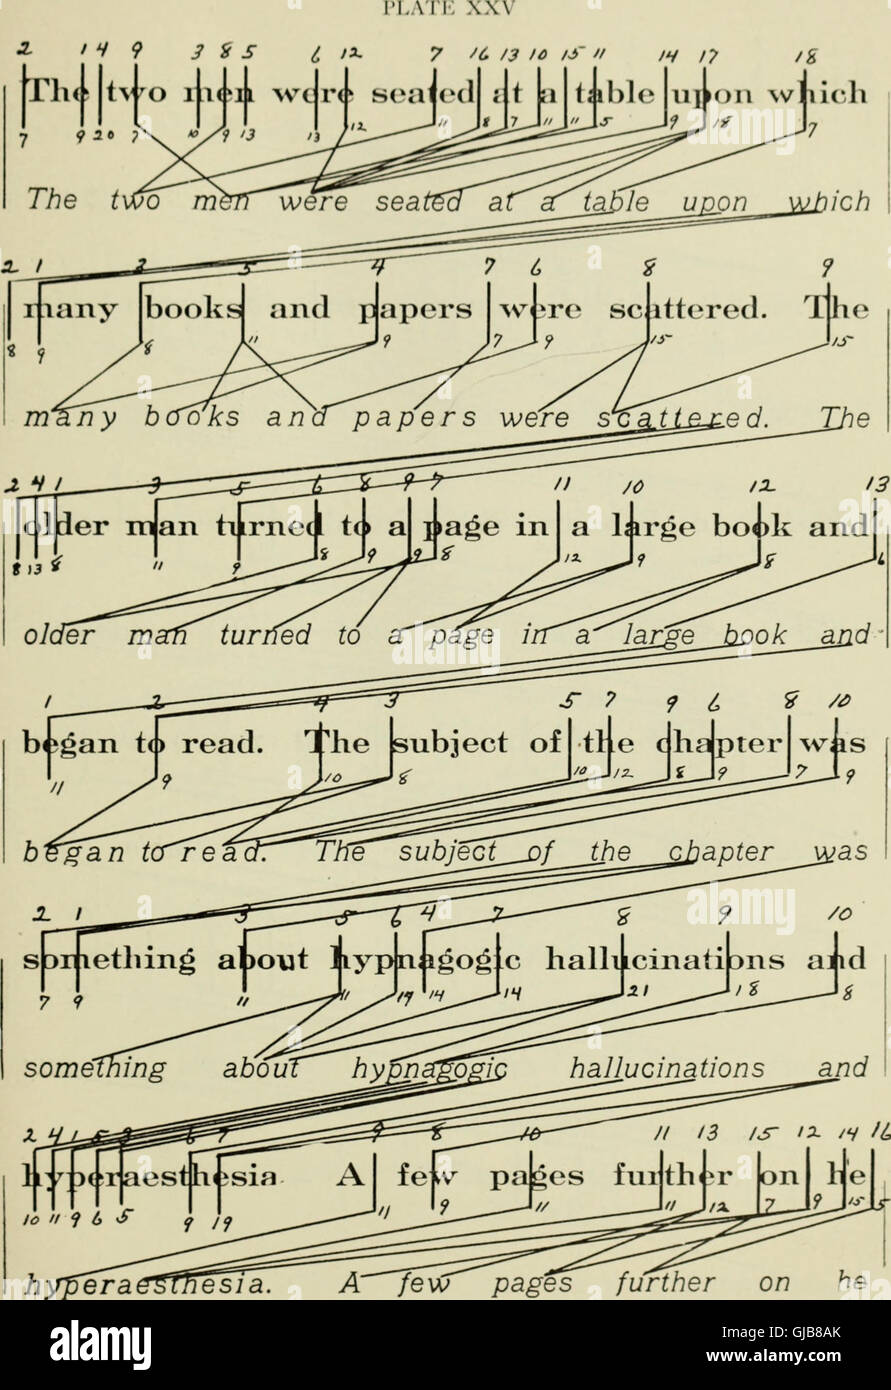 PLATE XXV
2 1 4 9 3 8 5 6 12 7 16 13 10 15 11 14 17 18
The two men were seated at a table upon which
7 9 20 7 10 9 13 13 12 11 8 7 11 11 5 9 18 7
The two men were seated at a table upon which
2 1 3 5 4 7 6 8 9
many books and papers were scattered. The
8 9 8 11 9 7 9 15 15
many books and papers were scattered. The
2 4 1 3 5 6 8 9 7 11 10 12 13
older man turned to a page in a large book and
8 13 8 11 9 8 9 9 8 12 9 8 6
older man turned to a page in a large book and
1 2 4 3 5 7 9 6 8 10
began to read. The subject of the chapter was
11 9 10 8 10 12 8 9 7 9
began to read. The subject of the chapter was
2 1 3 5 6 4 7 8 9 10
something about hypnagogic hallucinations and
7 9 11 11 19 14 14 21 18 8
something about hypnagogic hallucinations and
2 4 1 5 3 6 7 9 8 10 11 13 15 12 14 16
hyperaesthesia. A few pages further on he
10 11 9 6 5 9 19 11 9 11 11 12 7 9 15 5
hyperaesthesia. A few pages further on he
alamy stock photo
GJB8AK
www.alamy.com